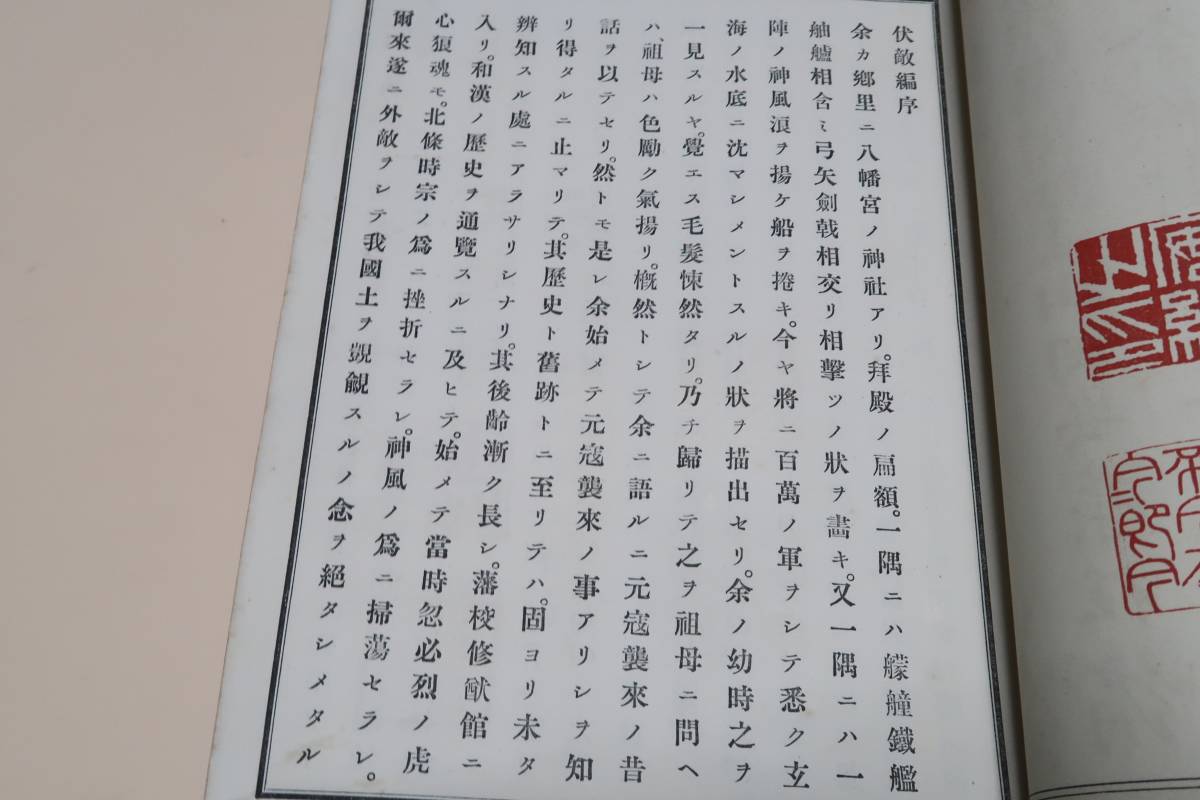 伏敵編序
余カ鄕里ニ八幡宮ノ神社アリ。拜殿ノ扁額。一隅ニハ艨艟鐵艦
舳艫相含ミ弓矢劍戟相交リ相擊ツノ狀ヲ畵キ。又一隅ニハ一
陣ノ神風浪ヲ揚ケ船ヲ捲キ。今ヤ將ニ百萬ノ軍ヲシテ悉ク玄
海ノ水底ニ沈マシメントスルノ狀ヲ描出セリ。余ノ幼時之ヲ
一見スルヤ。覺エス毛髮悚然タリ。乃チ歸リテ之ヲ祖母ニ問ヘ
ハ、祖母ハ色勵ク氣揚リ。槪然トシテ余ニ語ルニ元寇襲來ノ昔
話ヲ以テセリ。然トモ是レ余始メテ元寇襲來ノ事アリシヲ知
リ得タルニ止マリテ。其歷史ト舊跡トニ至リテハ。固ヨリ未タ
辨知スル處ニアラサリシナリ。其後齡漸ク長シ。藩校修猷館ニ
入リ。和漢ノ歷史ヲ通覽スルニ及ヒテ。始メテ當時忽必烈ノ虎
心狼魂モ。北條時宗ノ爲ニ挫折セラレ。神風ノ爲ニ掃蕩セラレ。
爾來遂ニ外敵ヲシテ我國土ヲ覬覦スルノ念ヲ絕タシメタル